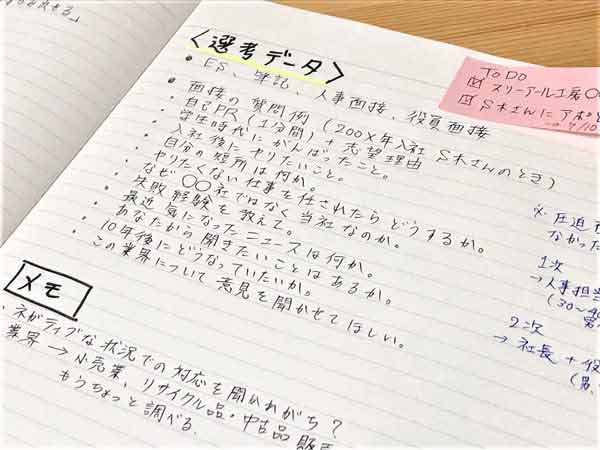 くなれる」
〈選考データ〉
・ES、筆記、人事面接、役員面接
・面接の質問例(200X年入社 S木さんのとき)
・自己PR(1分間)+志望理由
・学生時代にがんばったこと。
・入社後にヤリたいこと。
・自分の短所は何か。
・ヤリたくない仕事を任されたらどうするか。
・なぜ〇〇社ではなく当社なのか。
・失敗経験を教えて。
・最近気になったニュースは何か。
・あなたから聞きたいことはあるか。
・10年後にどうなっていたいか。
・この業界について意見を聞かせてほしい。
メモ
・ネガティブな状況での対応を聞かれがち?
業界→小売業、リサイクル品・中古品販売
もうちょっと調べる。
ToDo
☑ スリーアール工房
☑ S木さんにアポ
7/10
※圧迫
なかった
1次
→人事担当
(30〜40
男
2次
→社長+役
(男、